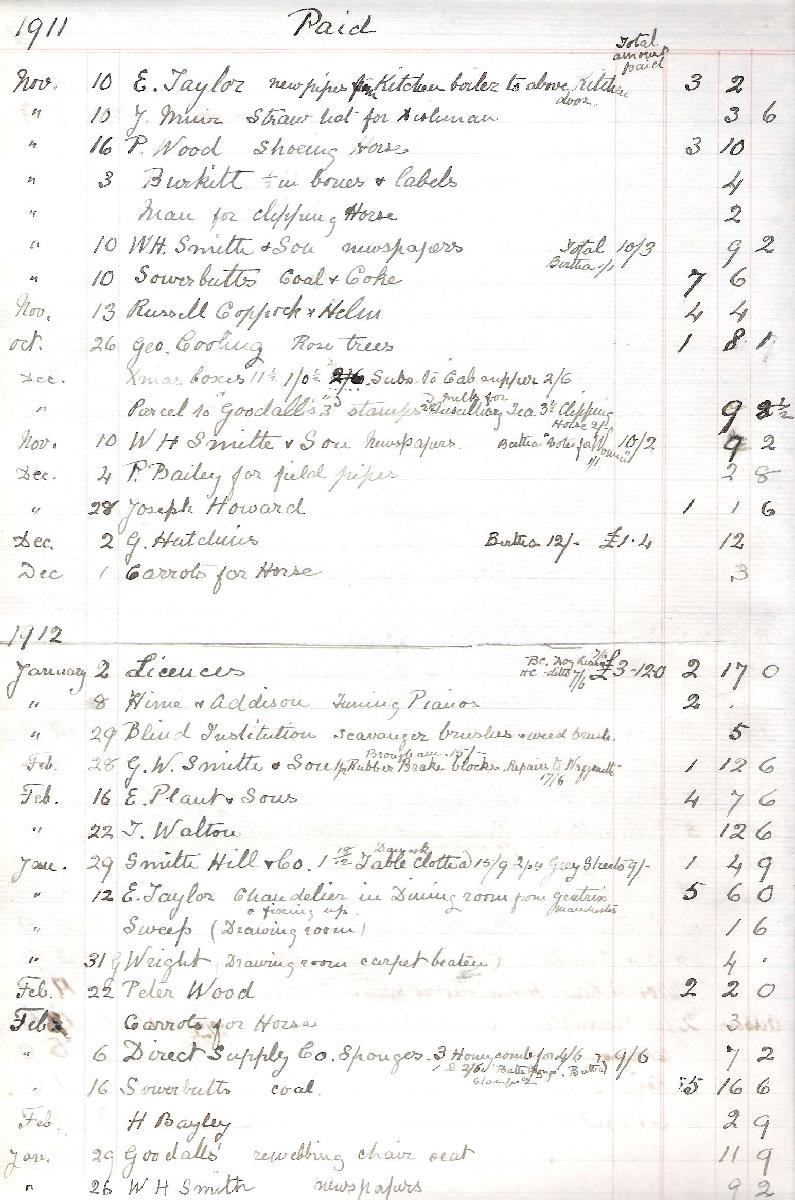 1911 Paid
Total amount paid
Nov. 10 E. Taylor new pipes from Kitchen boiler to above Kitchen door. 3 2
" 10 J. Muir Straw hat for 3 6
" 16 P. Wood Shoeing Horse 3 10
" 3 Burkitt tin bones & labels 4
" Man for clipping Horse 2
" 10 WH. Smith & Son newspapers Total 10/3 Bertha 1/1 9 2
" 10 Sowerbutts Coal & Coke 7 6
Nov. 13 Russell Coppock & Helm 4 4
Oct. 26 Geo. Cooling Rose trees 1 8
Dec. Xmas boxes 11½ 1/0½ 2/6. Subs. to Cab supper 2/6
" Parcel to "Goodall's" 3d stamps milk for Tea 3½ Clipping Horse 2/- 9 2½
Nov. 10 W H Smith & Son Newspapers. Bertha 1/1 10/2 9 2
Dec. 4 P. Bailey for field pipes 2 8
" 28 Joseph Howard 1 1 6
Dec. 2 G. Hutchins Bertha 12/- £1.4 12
Dec 1 Carrots for Horse 3
1912
January 2 Licences BC. Dog Licence 7/6 HC ditto 7/6 £3-12-0 2 17 0
" 8 Hime & Addison Tuning Pianos 2 .
" 29 Blind Institution scavanger brushes & weed brush. 5
Feb. 28 G. W. Smith & Son Brougham 15/- Rubber Brake blocks. Repairs to Waggonette 17/6 1 12 6
Feb. 16 E. Plant & Sons 4 7 6
" 22 T. Walton 12 6
Jan. 29 Smith Hill & Co. 1 Damask Table Cloth @ 15/9 2 prs Grey Sheets 9/- 1 4 9
" 12 E. Taylor Chandelier in Dining room from Gratrix Manchester 5 6 0
& fixing up.
" Sweep (Drawing room) 1 6
" 31 G Wright (Drawing room carpet beaten) 4 .
Feb. 22 Peter Wood 2 2 0
Feb. Carrots for Horse 3
" 6 Direct Supply Co. Sponges. 3 Honeycomb for 4/6 9/6 7 2
" 16 Sowerbutts coal. 5 16 6
Feb. H Bayley 2 9
Jan. 29 Goodalls' rewebbing chair seat 11 9
" 26 W H Smith newspapers 9 2